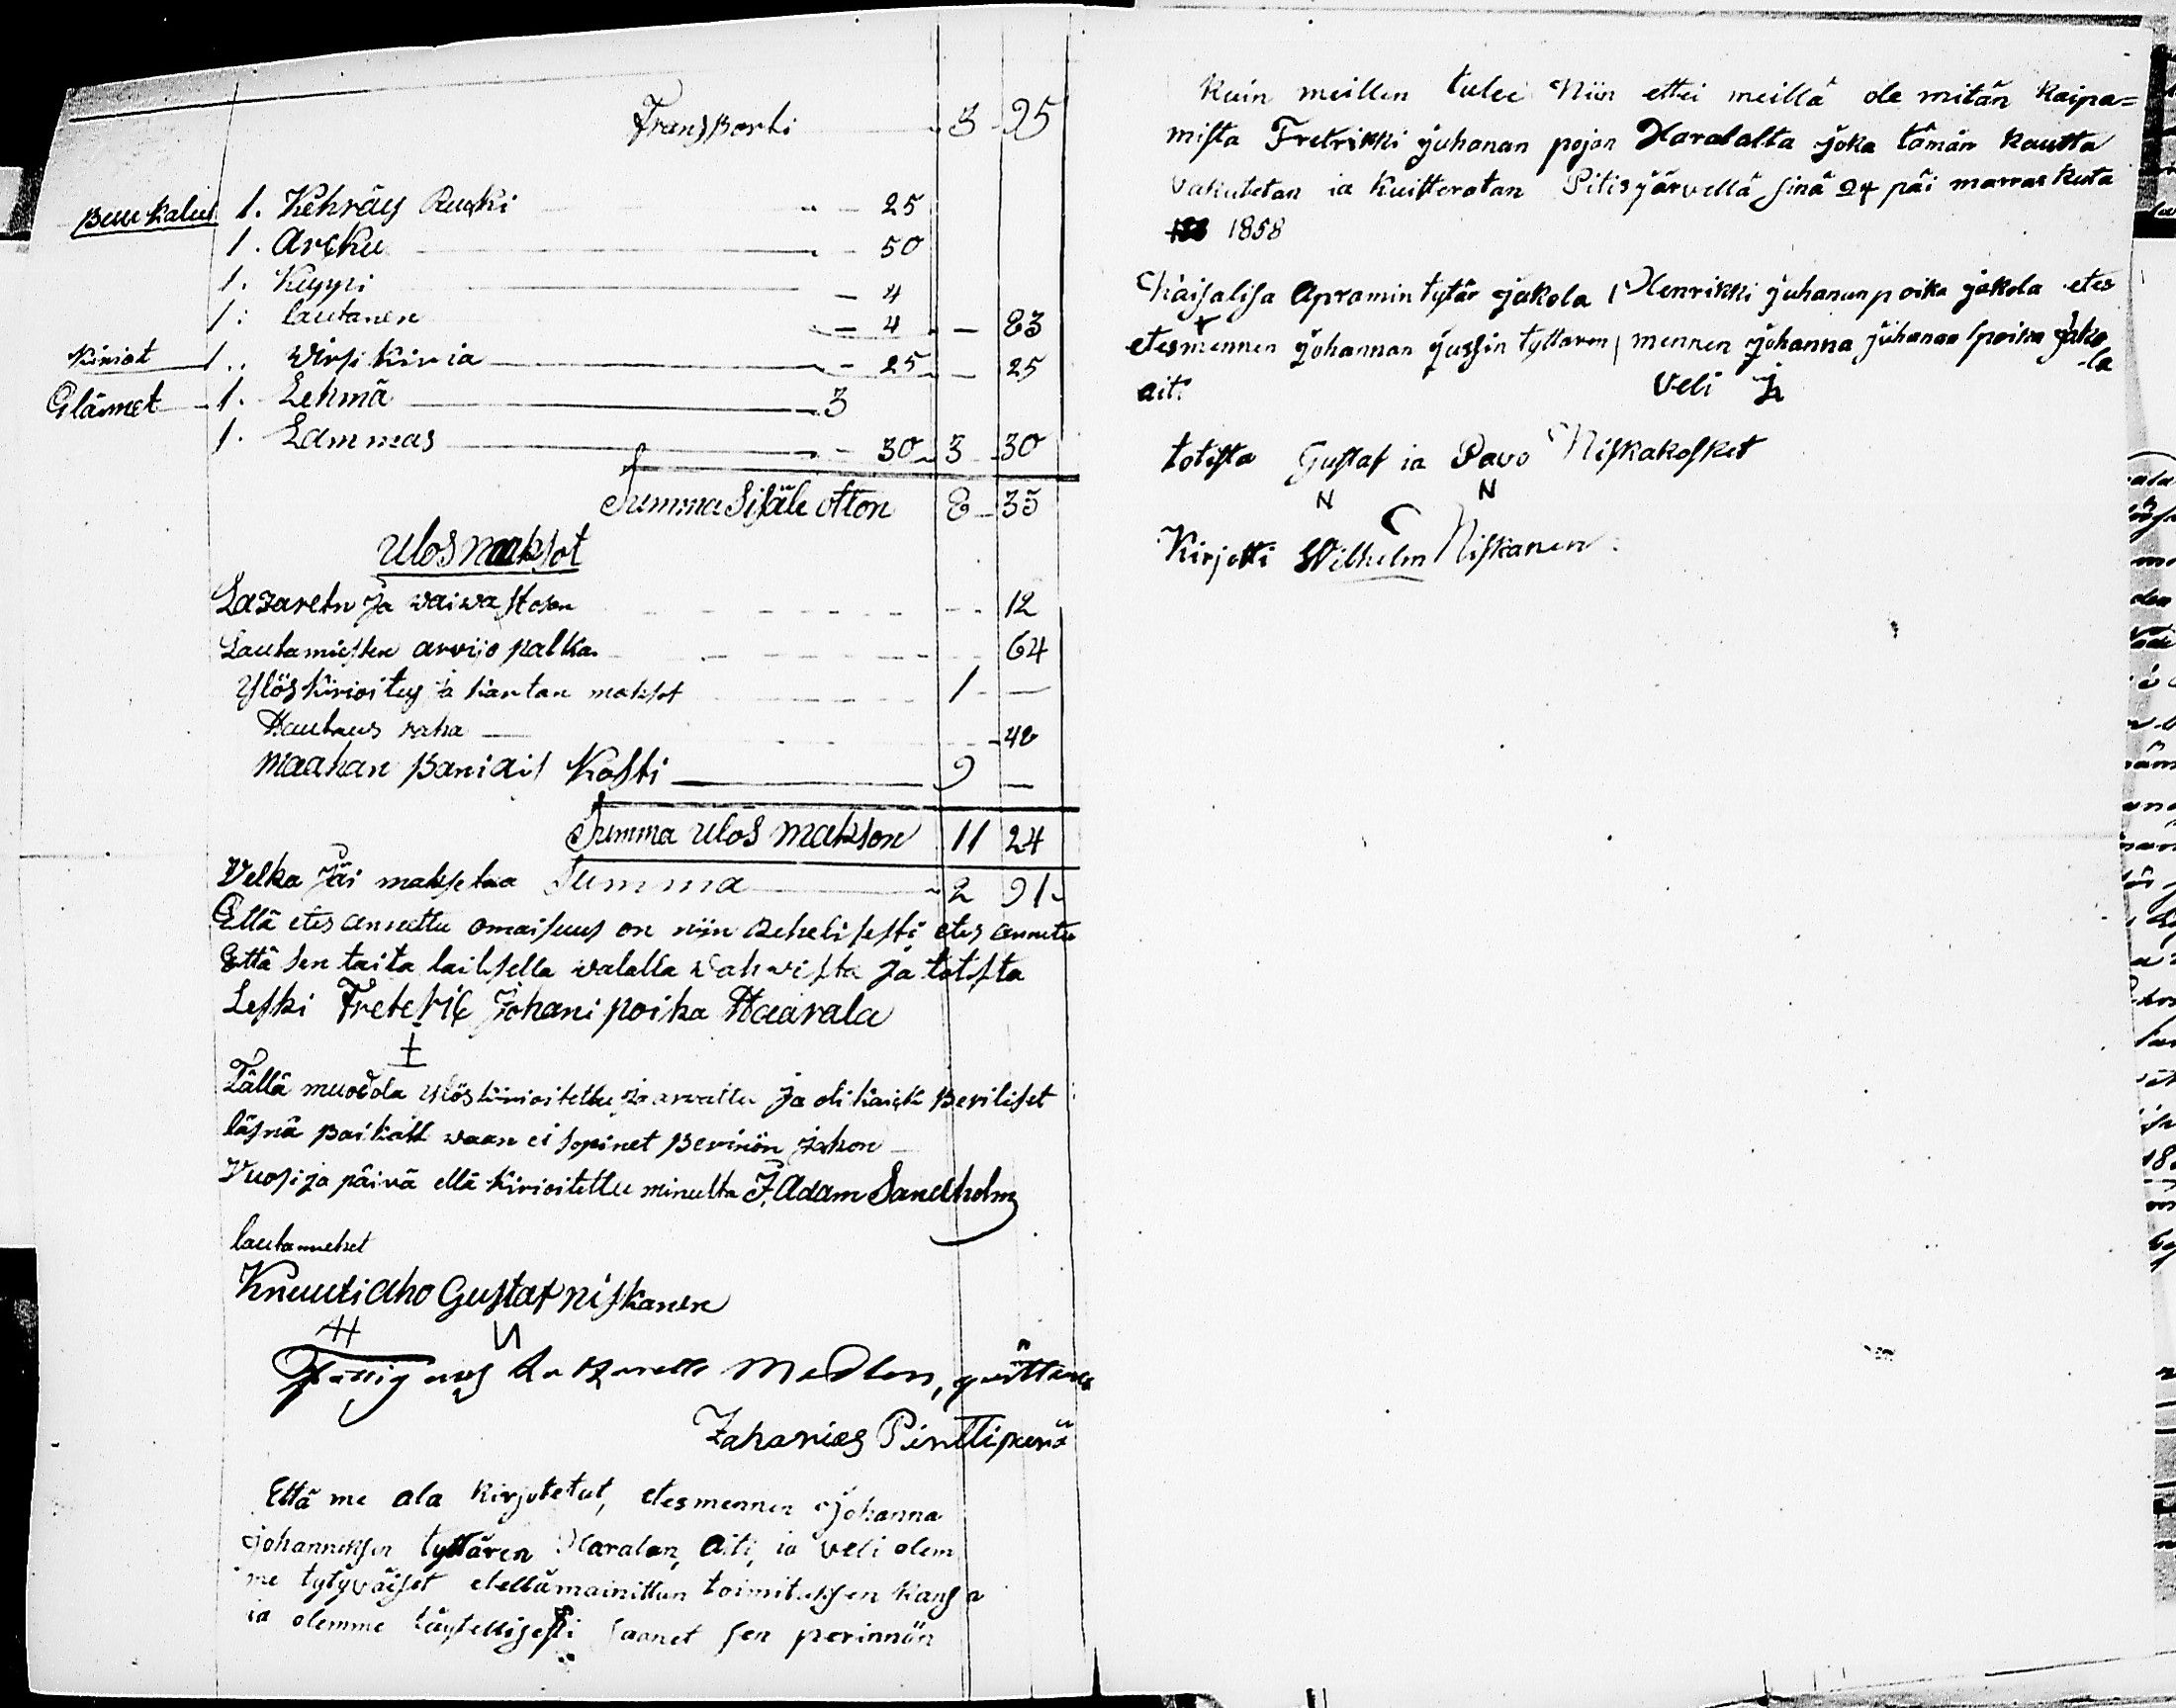 Transporti 3 95
Puu kalut 1. Kehräys Rucki 25
1. Arcku 50
1. Kuppi 4
1. lautanen 4 — 83
Kiriat 1. Wirsi kiria 25 — 25
Eläimet 1. Lehmä 3
1. Lammas 30 3 30
Summa Sisäle otton 8 33
Ulos maksot
Lazaretin ja waiwasten 12
Lautamiesten arvijo palka 64
Ylös kirioitus ja kartan maksot 1 —
Hautaus raha 48
Maahan Paniais Kosti 9 —
Summa Ulos makson 11 24
Velka jäi maksetaa Summa 2 91
Että etes annettu omaisuus on niin Rehelisesti etes annettu
Että sen taita lailisella walalla wahwista ja totista
Leski Freteric Johani poika Haarala
Tällä muodola Ylös kirioitettu ja arvattu ja oli kaick Periliset
läsnä Paikall waan ei sopinet Perinön jakon
Vuosi ja päivä ellä kirioitettu minulta J. Adam Sandholm
lautamiehet
Knuuti aho Gustaf niskanen
H N
Fattig och Latzaretts Medlen, quitteras
Zaharias Pirttiperä
Että me ala kirjotetut, etesmennen Johanna
Johanneksen tyttären Haralan, Aiti, ia veli olem
me tytyväiset edellämainittun toimituksen kansa
ia olemme täytellisesti saanet sen perinnön
kuin meillen tulee Niin ettei meillä ole mitän kaipa=
mista Fretrikki juhanan pojan Haralalta joka tämän kautta
vakutetan ia kuitteratan Pitisjärvellä sinä 24 päi marras kuta
1858
Kaisalisa Apramin tytär jakola Henrikki juhanan poika jakola etes
etesmennen johannan jussin tyttaren mennen johanna juhanan poika jako
la
aiti veli
totista Gustaf ia Pavo Niskakosket
N N
Kirjotti Wilhelm Niskanen